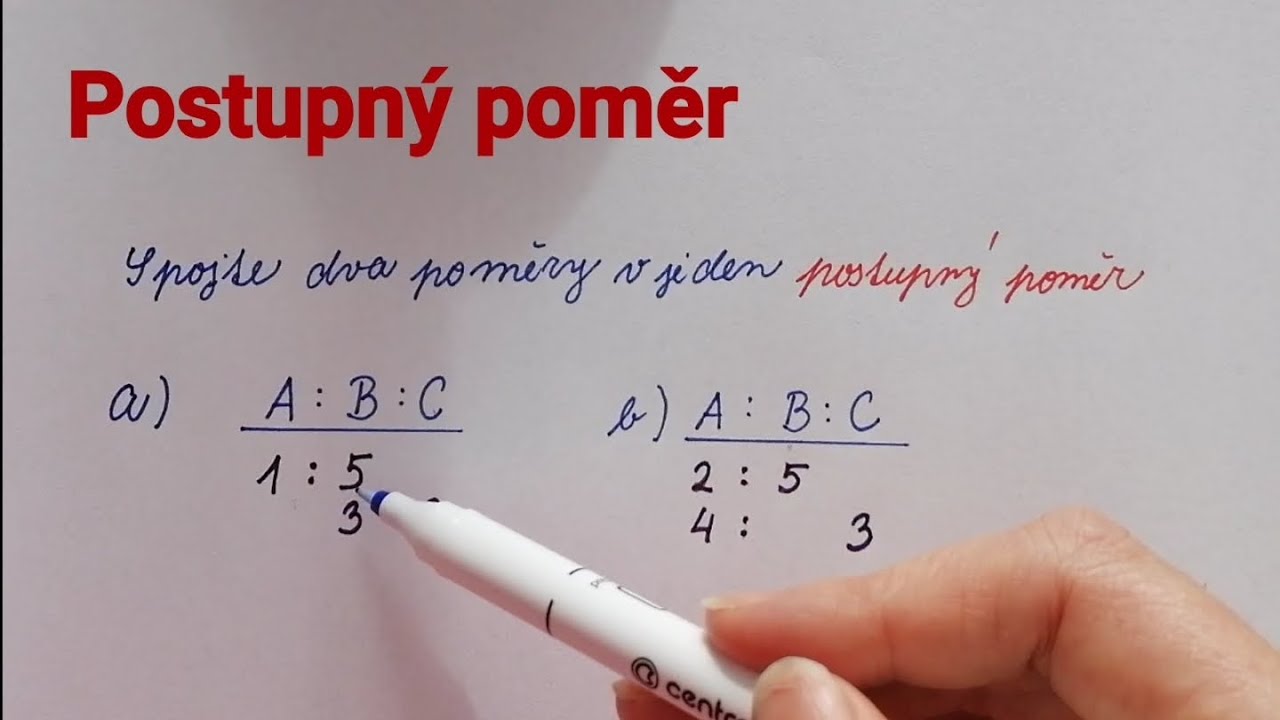 Postupný poměr
Spojte dva poměry v jeden postupný poměr
a) A : B : C
1 : 5
3
b) A : B : C
2 : 5
4 : 3
centr